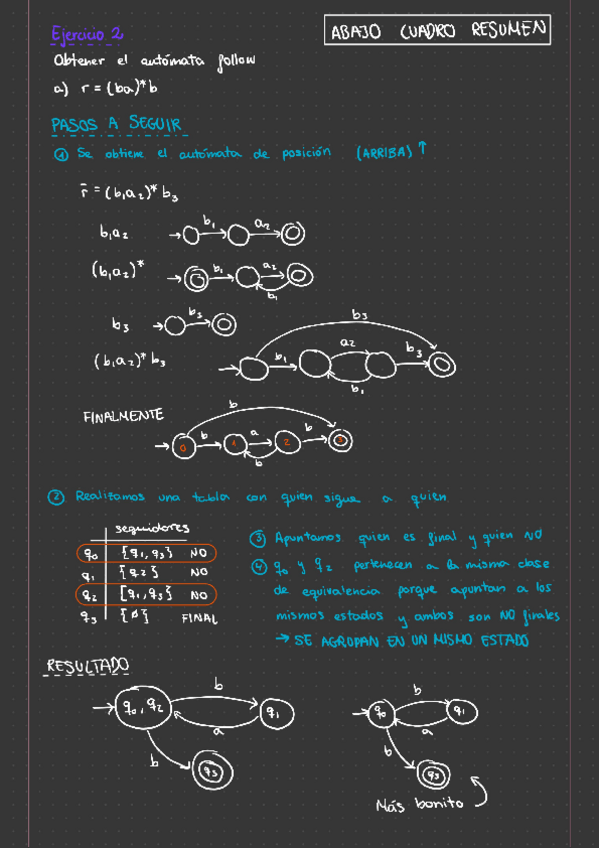 Ejercicio 2
ABAJO CUADRO RESUMEN
Obtener el autómata follow
a) r = (ba)*b
PASOS A SEGUIR
① Se obtiene el autómata de posición (ARRIBA) ↑
r̄ = (b₁a₂)* b₃
b₁a₂ b₁ a₂
(b₁a₂)* b₁ a₂ b₁
b₃ b₃
(b₁a₂)* b₃ b₃ b₁ a₂ b₁ b₃
FINALMENTE
b b a b b
0 1 2 3
② Realizamos una tabla con quien sigue a quien
seguidores
q₀ {q₁, q₃} NO
q₁ {q₂} NO
q₂ {q₁, q₃} NO
q₃ {ø} FINAL
③ Apuntamos quien es final y quien NO
④ q₀ y q₂ pertenecen a la misma clase
de equivalencia porque apuntan a los
mismos estados y ambos son NO finales
→ SE AGROPAN EN UN MISMO ESTADO
RESULTADO
q₀, q₂ b a q₁ b q₃
q₀ b a q₁ b q₃
Más bonito